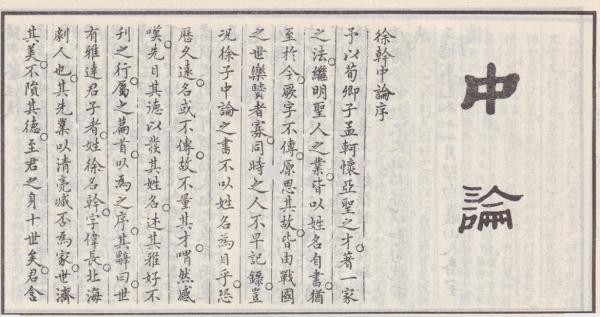 中論
徐幹中論序
予以荀卿子孟軻懷亞聖之才著一家
之法繼明聖人之業皆以姓名自書猶
至於今厥字不傳原思其故皆由戰國
之世樂賢者寡同時之人不早記錄豈
况徐子中論之書不以姓名為目乎恐
歷久遠名或不傳故不量其才喟然感
嘆先目其德以發其姓名述其雅好不
刊之行屬之篇首以為之序其辭曰世
有雅達君子者姓徐名幹字偉長北海
劇人也其先業以清亮臧否為家世濟
其美不隕其德至君之身十世矣君含